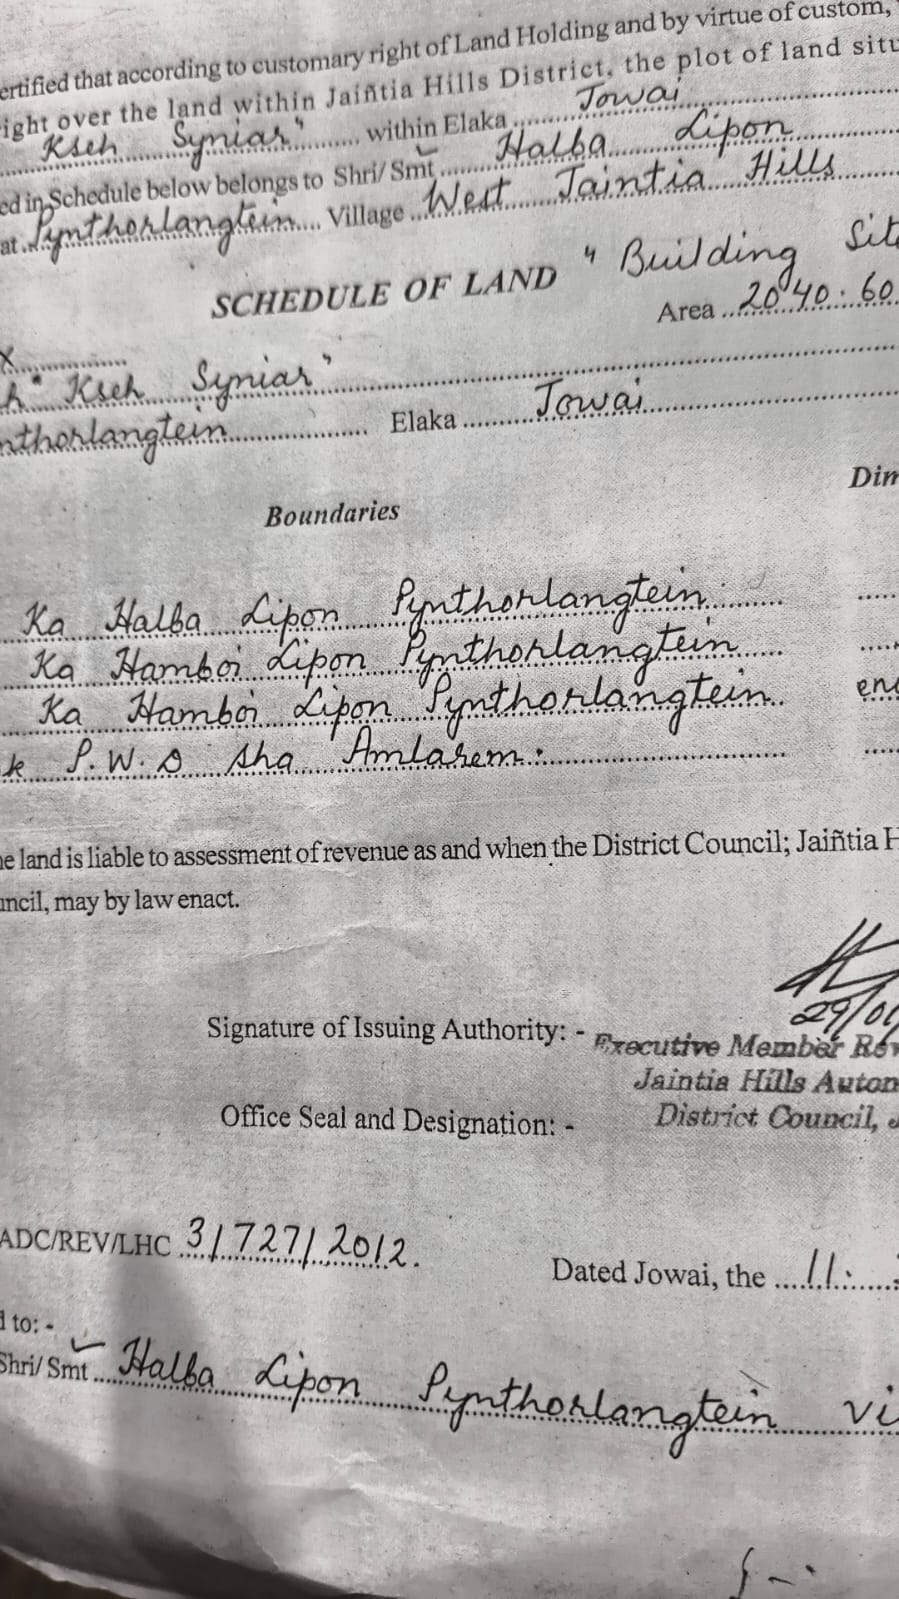 ertified that according to customary right of Land Holding and by virtue of custom,
ight over the land within Jaiñtia Hills District, the plot of land situ
Kseh Syniar" within Elaka Jowai
ed in Schedule below belongs to Shri/ Smt Halba Lipon
at Pynthorlangtein Village West Jaintia Hills
SCHEDULE OF LAND " Building Sit
Area 20 40 : 60
X
h " Kseh Syniar"
nthorlangtein Elaka Jowai
Dim
Boundaries
Ka Halba Lipon Pynthorlangtein
Ka Hamboi Lipon Pynthorlangtein
Ka Hamboi Lipon Pynthorlangtein enc
k P.W.D sha Amlarem :
he land is liable to assessment of revenue as and when the District Council; Jaiñtia H
uncil, may by law enact.
29/01
Signature of Issuing Authority: -
Executive Member Rev
Jaintia Hills Auton
Office Seal and Designation: - District Council, J
ADC/REV/LHC 3/727/2012.
Dated Jowai, the 11.
d to: -
Shri/ Smt Halba Lipon Pynthorlangtein vi